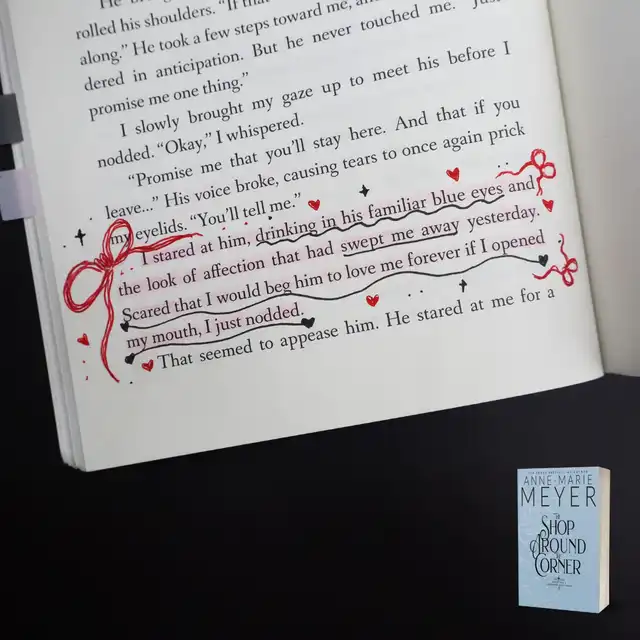 He
rolled his shoulders. "If that
along." He took a few steps toward me, an
dered in anticipation. But he never touched me. "Just
promise me one thing."
I slowly brought my gaze up to meet his before I
nodded. "Okay," I whispered.
"Promise me that you'll stay here. And that if you
leave..." His voice broke, causing tears to once again prick
my eyelids. "You'll tell me."
I stared at him, drinking in his familiar blue eyes and
the look of affection that had swept me away yesterday.
Scared that I would beg him to love me forever if I opened
my mouth, I just nodded.
That seemed to appease him. He stared at me for a
ANNE-MARIE
MEYER
THE
SHOP
AROUND
CORNER